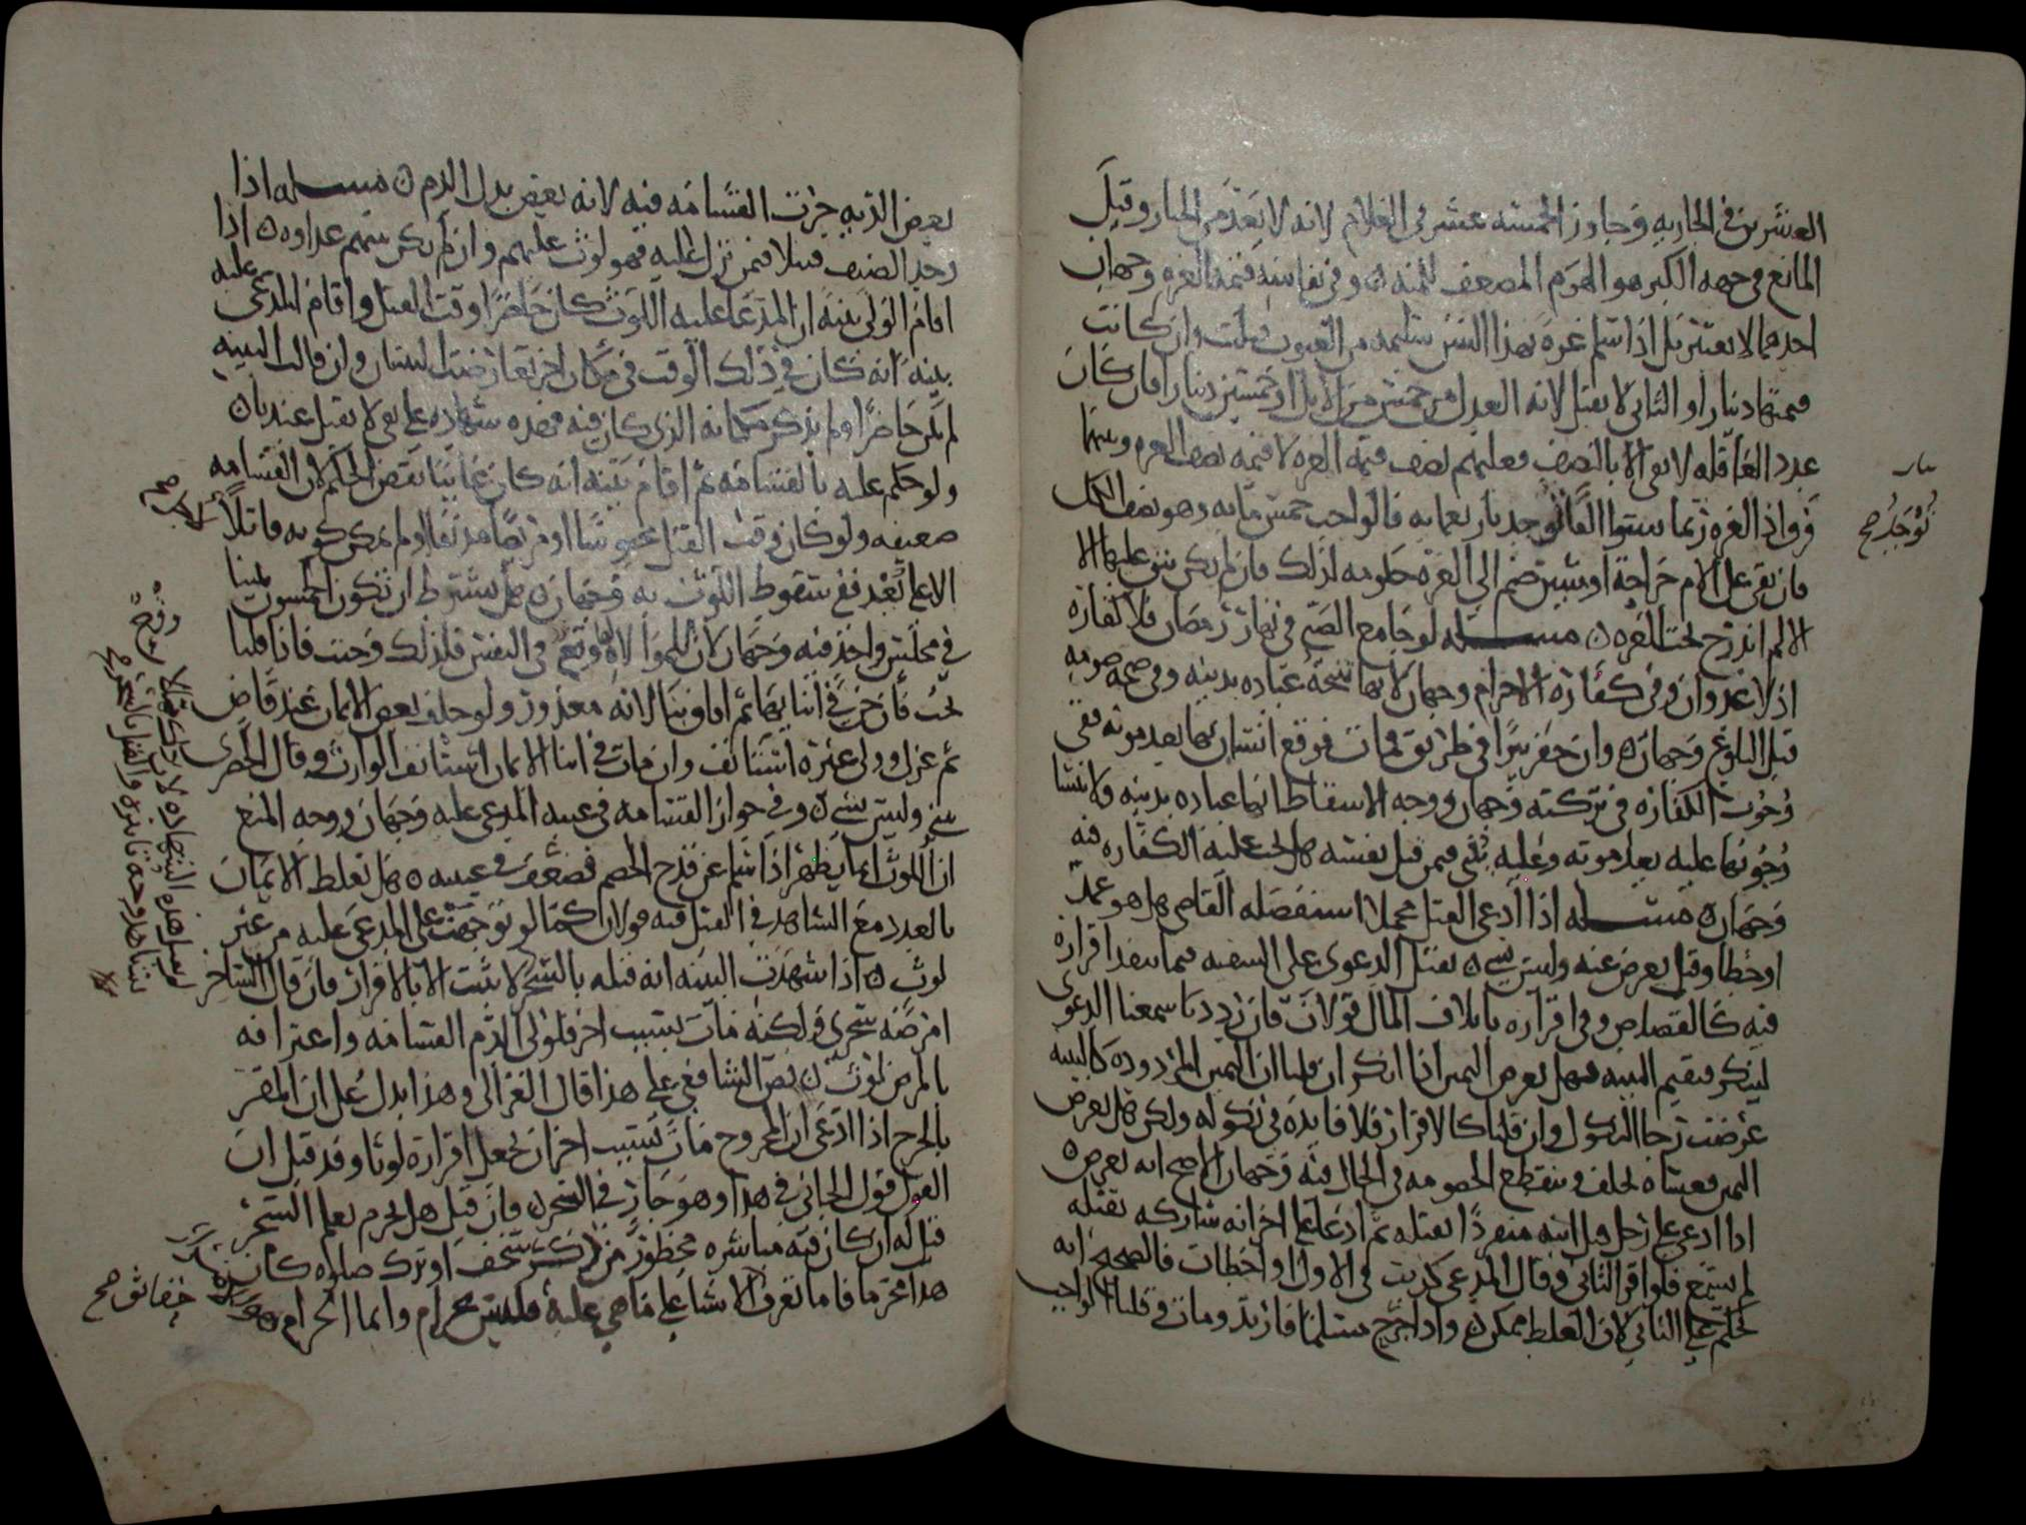 العشرين في الجاريه وجاوز الخمسه عشر في الغلام لانه لا يعد من الخيار وقيل
المانع في جهه الكبر هو الهرم المضعف للمنه وفي نفاسه قيمه الغره وجهان
احدهما لا يعتبر بل اذا سلم غره بهذا السن سليمه من العيوب قبلت وان كانت
قيمتها دينارا والثاني لا يقبل لانه العدل من خمس من الابل او خمسين دينارا فان كان
عدد العاقله لا يفي الا بالنصف فعليهم نصف قيمه الغره لا قيمه نصف الغره وبينهما
فرق اذ الغره ربما ستوا الفا توجد باربعمايه فالواجب خمس مايه وهو نصف الكل
فان بقي على الام جراحة او شين ضم الى الغره حكومه لذلك فان لم يكن بقي عليها الا
الالم اندرج تحت الغره مسله لو جامع الصبي في نهار رمضان فلا كفاره
اذ لا عدوان وفي كفاره الاحرام وجهان لانها نتيجة عباده بدنيه وفي صحه صومه
قبل البلوغ وجهان وان حفر بيرا في طريق فمات فوقع انسان بها بعد موته ففي
وجوب الكفاره في تركته وجهان ووجه الاسقاط انها عباده بدنيه ولا ينشا
وجوبها عليه بعد موته وعليه بني فيمن قتل نفسه هل تجب عليه الكفاره فيه
وجهان مسله اذا ادعى القتل مجملا استفصله القاضي هل هو عمد
او خطا وقيل يعرض عنه وليس بشي يقبل الدعوى على السفيه فيما ينفد اقراره
فيه كالقصاص وفي اقراره باتلاف المال قولان فان ردد نا سمعنا الدعوى
لينكر فيقيم البينه فهل يعرض اليمين اذا انكر ان قلنا ان اليمين المردوده كالبينه
عرضت رجا النكول وان قلنا كالاقرار فلا فايده في نكوله ولكن هل يعرض
اليمين فعساه يحلف وينقطع الخصومه في الحال فيه وجهان الاصح انه يعرض
اذا ادعى على رجل قتل ابنه منفردا بقتله ثم ادعا على اخر انه شاركه بقتله
لم يسمع فلو اقر الثاني وقال المدعي كذبت في الاول او اخطات فالصحيح انه
يحكم على الثاني لان الغلط ممكن واذا جرح مسلما فارتد ومات وقلنا الواجب
توجد صح
بعض الديه جرت القسامه فيه لانه بعض بدل الدم مسله اذا
وجد الضيف قتيلا فيمن نزل عليه فهو لوث عليهم وان لم يكن بينهم عداوه اذا
اقام الولي بينه ان المدعا عليه اللوث كان حاضرا وقت القتل واقام المدعى عليه
بينه انه كان في ذلك الوقت في مكان اخر تعارضت البينتان وان قالت البينه
لم يكن حاضرا ولم يذكر مكانه الذي كان فيه فهذه شهاده على نفي لا يقبل عندنا
ولو حكم عليه بالقسامه ثم اقام بينه انه كان غايبا نقض الحكم لان القسامه
ضعيفه ولو كان وقت القتل محبوسا او مريضا مدنفا ولم يمكن كونه قاتلا
الا على بعد ففي سقوط اللوث به وجهان هل يشترط ان تكون الخمسون يمينا
في مجلس واحد فيه وجهان لان للموالاه وقع في النفس فلذلك وجبت فاذا قلنا
تجب فان جن في اثنايها ثم افاق بنا لانه معذور ولو حلف بعض الايمان عند قاض
ثم عزل وولى غيره استانف وان مات في اثنا الايمان استانف الوارث وقال الخضري
يبني وليس بشي وفي جواز القسامه في غيبه المدعى عليه وجهان ووجه المنع
ان اللوث انما يظهر اذا سلم عن قدح الخصم فضعف في غيبته هل تغلط الايمان
بالعدد مع الشاهد في القتل فيه قولان كما لو توجهت على المدعى عليه من غير
لوث اذا شهدت البينه انه قتله بالسحر لا يثبت الا بالاقرار فان قال الساحر
امرضه سحري ولكنه مات بسبب اخر فلولي الدم القسامه واعترافه
بالمرض لوث نص الشافعي على هذا قال الغزالي وهذا يدل على ان المقر
بالجرح اذا ادعى ان المجروح مات بسبب اخر ان يجعل اقراره لوثا وقد قيل ان
القول قول الجاني في هذا وهو جار في السحر فان قيل هل يحرم تعلم السحر
قيل له ان كان فيه مباشره محظور من ذكر سخف او ترك صلاه كان
هذا محرما فاما تعرف الاشيا على ما هي عليه فليس بحرام وانما الحرام
خقايق صح